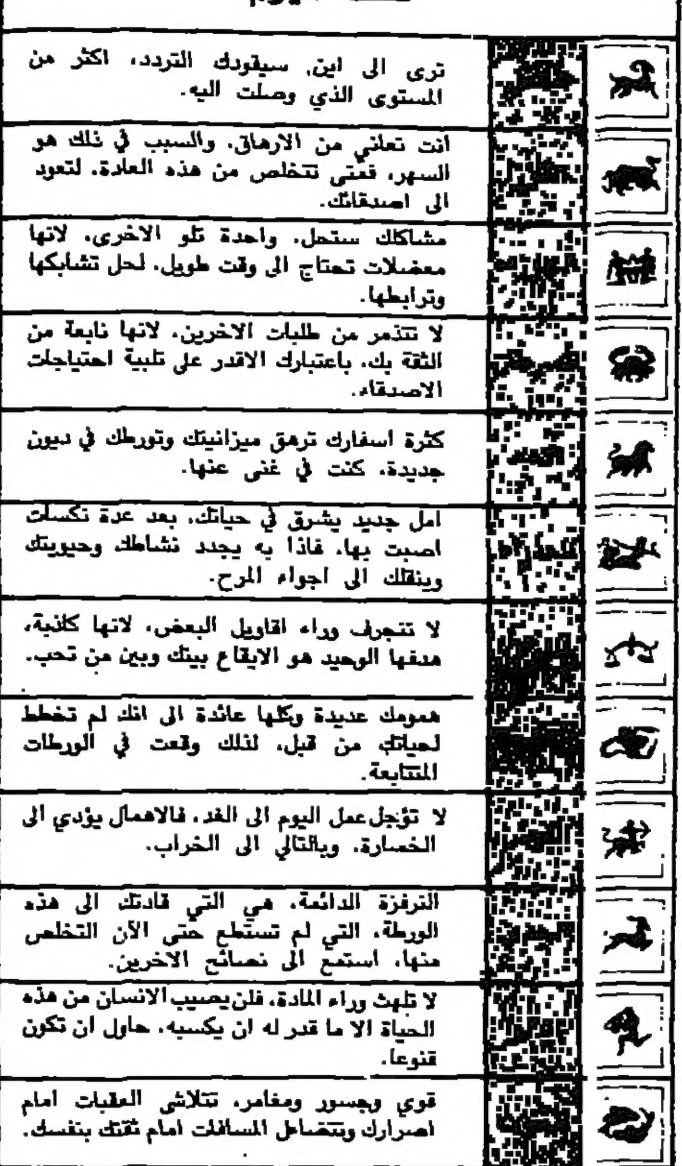 ترى الى اين، سيقودك التردد، اكثر من
المستوى الذي وصلت اليه.
انت تعاني من الارهاق، والسبب في ذلك هو
السهر، فمتى تتخلص من هذه العادة، لتعود
الى اصدقائك.
مشاكلك ستحل، واحدة تلو الاخرى، لانها
معضلات تحتاج الى وقت طويل، لحل تشابكها
وترابطها.
لا تتذمر من طلبات الاخرين، لانها نابعة من
الثقة بك، باعتبارك الاقدر على تلبية احتياجات
الاصدقاء.
كثرة اسفارك ترهق ميزانيتك وتورطك في ديون
جديدة، كنت في غنى عنها.
امل جديد يشرق في حياتك، بعد عدة نكسات
اصبت بها، فاذا به يجدد نشاطك وحيويتك
وينقلك الى اجواء المرح.
لا تنجرف وراء اقاويل البعض، لانها كاذبة،
هدفها الوحيد هو الايقاع بينك وبين من تحب.
همومك عديدة وكلها عائدة الى انك لم تخطط
لحياتك من قبل، لذلك وقعت في الورطات
المتتابعة.
لا تؤجل عمل اليوم الى الغد، فالاهمال يؤدي الى
الخسارة، وبالتالي الى الخراب.
النرفزة الدائمة، هي التي قادتك الى هذه
الورطة، التي لم تستطع حتى الآن التخلص
منها، استمع الى نصائح الاخرين.
لا تلهث وراء المادة، فلن يصيب الانسان من هذه
الحياة الا ما قدر له ان يكسبه، حاول ان تكون
قنوعا.
قوي وجسور ومغامر، تتلاشى العقبات امام
اصرارك وتتضاءل المسافات امام ثقتك بنفسك.